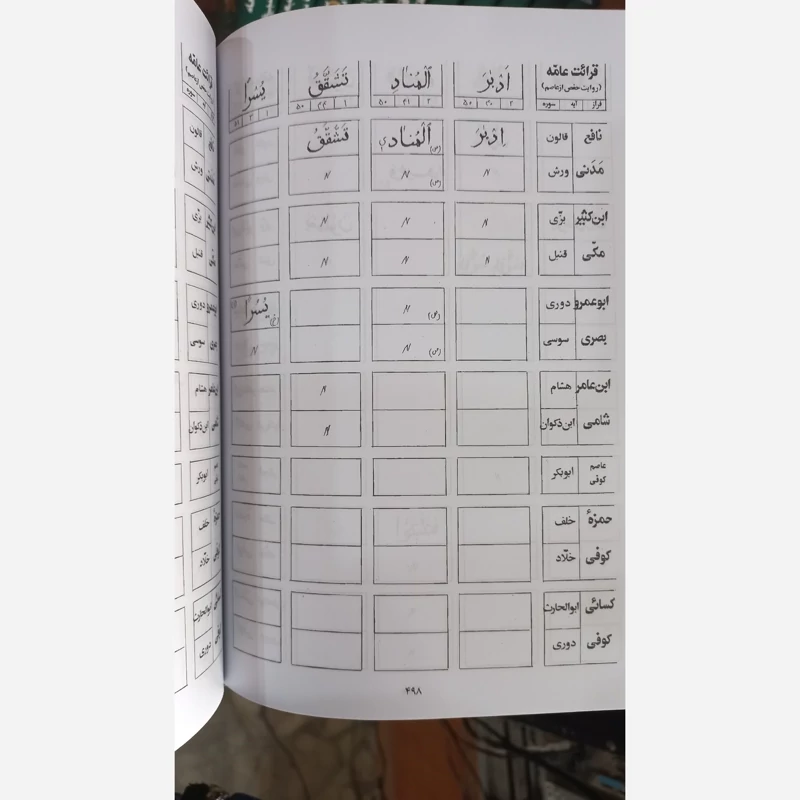 قرائت عامّه اَدْبَٰرَ اَلْمُنَادِ تَشَقَّقُ يُسْرًا
(روایت حفص از عاصم)
فراز آیه سوره ۲ ۴۰ ۵۰ ۲ ۴۱ ۵۰ ۱ ۴۴ ۵۰ ۱ ۳ ۵۱
نافع قالون اِدْبَٰرَ اَلْمُنَادِي (ص) تَشَّقَّقُ
مَدَنی ورش 〃 〃 (ص) 〃
ابن‌کثیر بزّی 〃 〃 〃
مکّی قنبل 〃 〃 〃
ابوعمرو دوری 〃 (ص) يُسْرًا (خ)
بصری سوسی 〃 (ص) 〃
ابن‌عامر هشام 〃
شامی ابن‌ذکوان 〃
عاصم ابوبکر
کوفی
حمزهٔ خلف
کوفی خلّاد
کسائی ابوالحارث
کوفی دوری
۴۹۸